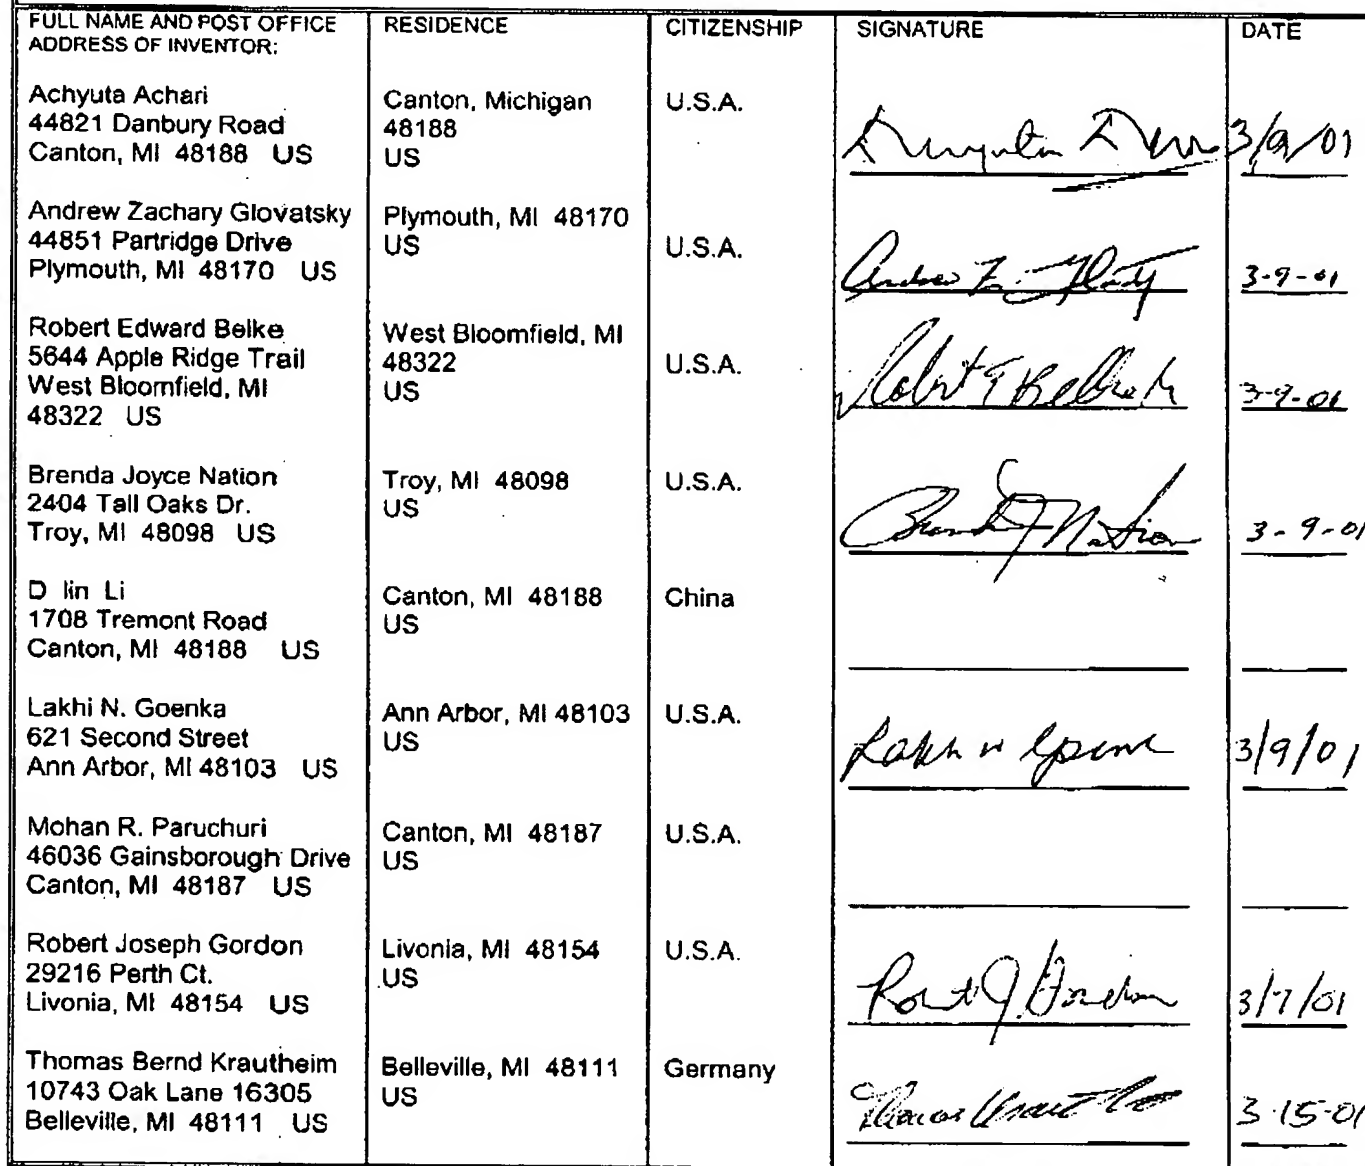 FULL NAME AND POST OFFICE ADDRESS OF INVENTOR:
RESIDENCE
CITIZENSHIP
SIGNATURE
DATE
Achyuta Achari
44821 Danbury Road
Canton, MI 48188 US
Canton, Michigan
48188
US
U.S.A.
3/9/01
Andrew Zachary Glovatsky
44851 Partridge Drive
Plymouth, MI 48170 US
Plymouth, MI 48170
US
U.S.A.
3-9-01
Robert Edward Belke
5644 Apple Ridge Trail
West Bloomfield, MI
48322 US
West Bloomfield, MI
48322
US
U.S.A.
3-9-01
Brenda Joyce Nation
2404 Tall Oaks Dr.
Troy, MI 48098 US
Troy, MI 48098
US
U.S.A.
Brenda J Nation
3-9-01
D lin Li
1708 Tremont Road
Canton, MI 48188 US
Canton, MI 48188
US
China
Lakhi N. Goenka
621 Second Street
Ann Arbor, MI 48103 US
Ann Arbor, MI 48103
US
U.S.A.
3/9/01
Mohan R. Paruchuri
46036 Gainsborough Drive
Canton, MI 48187 US
Canton, MI 48187
US
U.S.A.
Robert Joseph Gordon
29216 Perth Ct.
Livonia, MI 48154 US
Livonia, MI 48154
US
U.S.A.
Robert J. Gordon
3/7/01
Thomas Bernd Krautheim
10743 Oak Lane 16305
Belleville, MI 48111 US
Belleville, MI 48111
US
Germany
3-15-01